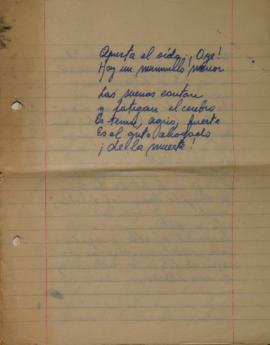 Apresta el oido... Oye!
Hay un murmullo menor
Las suenas cantan
y fatigan el cerebro
Es tenue, agrio, fuerte
Es el grito ahogado
¡De la muerte!